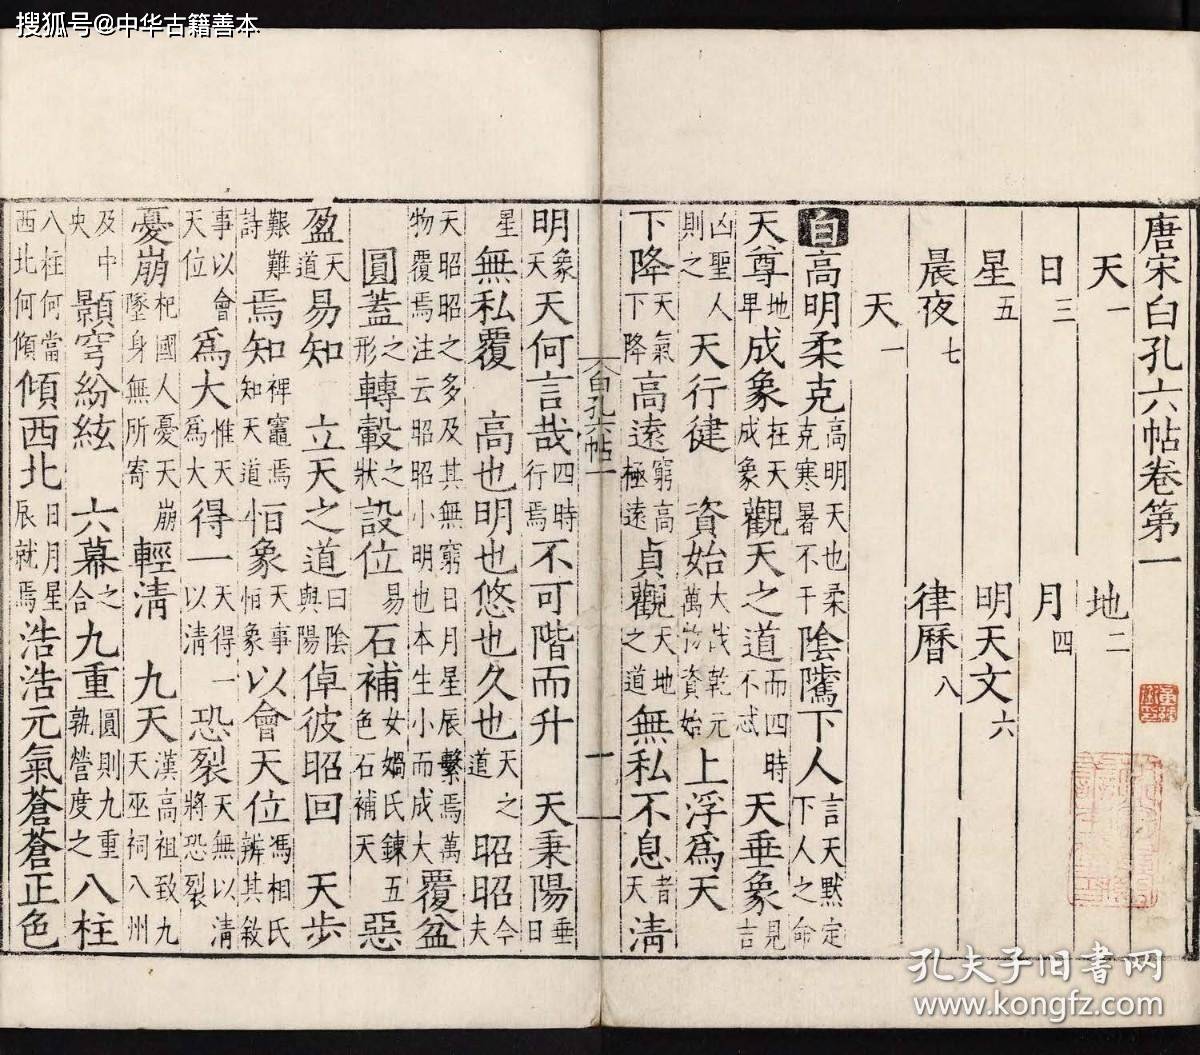 搜狐号@中华古籍善本
唐宋白孔六帖卷第一
天一 地二
日三 月四
星五 明天文六
晨夜七 律曆八
天一
白高明柔克高明天也柔克寒暑不干陰騭下人言天默定下人之命
天尊地卑成象在天成象觀天之道而四時不忒天垂象見吉
凶聖人則之天行健 資始大哉乾元萬物資始上浮爲天
下降天氣下降高遠窮高極遠貞觀天地之道無私不息者天清
白孔六帖一 一
明象天天何言哉四時行焉不可階而升 天秉陽垂日
星無私覆 高也明也悠也久也天之道昭昭今夫
天昭昭之多及其無窮日月星辰繫焉萬物覆焉注云昭昭小明也本生小而成大覆盆
圓蓋之形轉轂之狀設位易石補女媧氏鍊五色石補天惡
盈天道易知 立天之道曰陰與陽倬彼昭回 天步
艱難詩焉知裨竈焉知天道恒象天事恒象以會天位馮相氏辨其敘
事以會天位爲大惟天爲大得一天得一以清恐裂天無以清將恐裂
憂崩杞國人憂天崩墜身無所寄輕清 九天漢高祖致九天巫祠八州
及中央顥穹紛紜 六幕之合九重圓則九重孰營度之八柱
八柱何當西北何傾傾西北日月星辰就焉浩浩元氣蒼蒼正色
孔夫子旧书网
www.kongfz.com